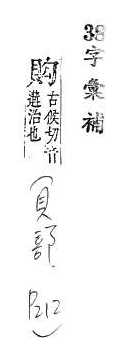 38字彙補
古候切音
遘治也
(貝部 P212)